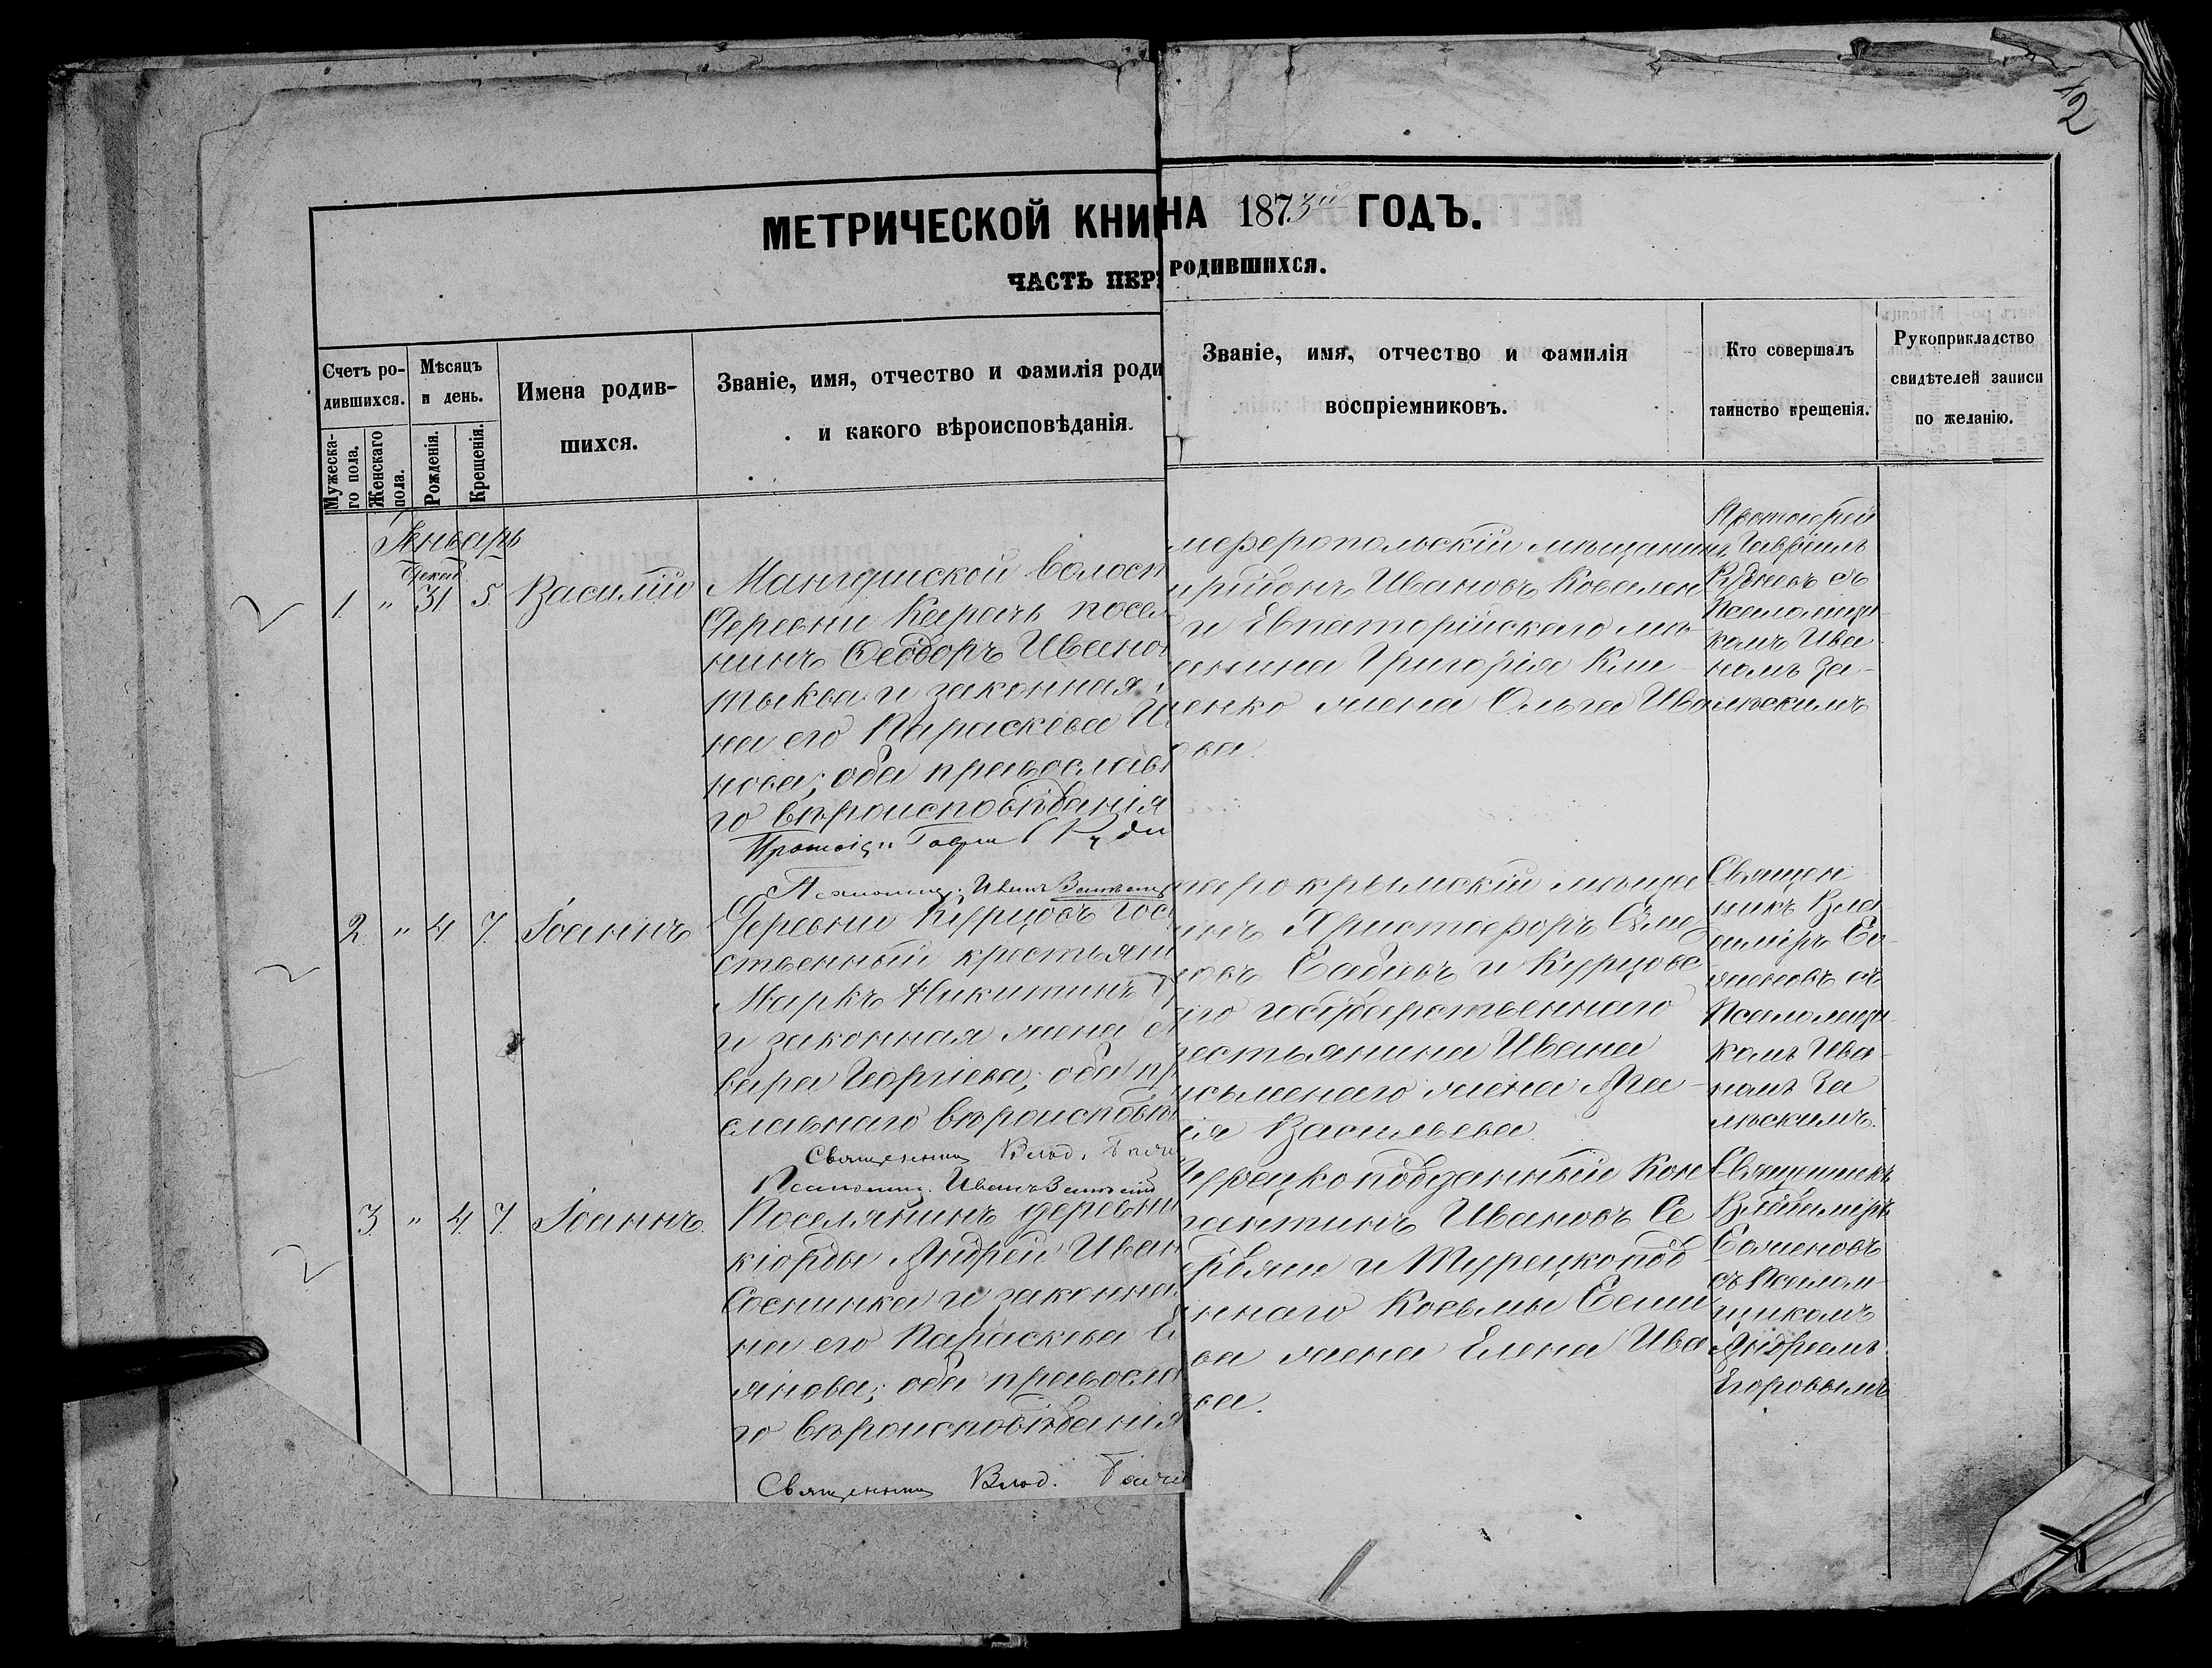 12
МЕТРИЧЕСКОЙ КНИ
НА 1873й ГОДЪ.
ЧАСТЬ ПЕР
РОДИВШИХСЯ.
Счетъ ро-
дившихся.
Мужеска-
го пола.
Женскаго
пола.
Мѣсяцъ
и день.
Рожденія.
Крещенія.
Имена родив-
шихся.
Званіе, имя, отчество и фамилія роди
и какого вѣроисповѣданія.
Званіе, имя, отчество и фамилія
воспріемниковъ.
Кто совершалъ
таинство крещенія.
Рукоприкладство
свидѣтелей записи
по желанію.
Январь
Декаб
1. " 31 5. Василій
Мангушской волост
Деревни Карачъ посел
нинъ Ѳеодоръ Иванов
тыква и законная
на его Параскева И
нова; оба православ
го вѣроисповѣданія
мферопольскій мѣщанин
иридонъ Ивановъ Ковален
и Евпаторійскаго мѣ
анина Григорія Кли
енко жена Ольга Ива
ова.
Протоіерей
Гавріилъ
Рудневъ съ
Псаломщи
комъ Ива
номъ За-
лѣскимъ
Псаломщ. Иванъ
2. " 4 7. Іоаннъ
Деревни Курцовъ гос
ственный крестьян
Маркъ Никитинъ
и законная жена е
вара Георгіева; оба пр
славнаго вѣроисповѣ
тарокрымскій мѣща
инъ Христофоръ
новъ и Курцовс
аго государственнаго
рестьянина Ивана
исьменаго жена Ага
ія Васильева.
Священ
никъ Вла
димиръ Ба
женовъ съ
Псаломщи
комъ Ива-
номъ За
лѣскимъ.
Священникъ Влад. Баже
Псаломщ. Иванъ
3. " 4. 7. Іоаннъ.
Поселянинъ деревни
кіорды Андрей Иван
Соснинка и законна
на его Параскева
янова; оба правосла
го вѣроисповѣданія
Турецкоподданный Кон
тантинъ Ивановъ Се
и Турецкопод
ннаго Косьмы
ва жена Елена Ива
ова.
Священникъ
Владимиръ
Баженовъ
съ Псалом
щикомъ
Андреемъ
Егоровымъ
Священникъ Влад. Баже